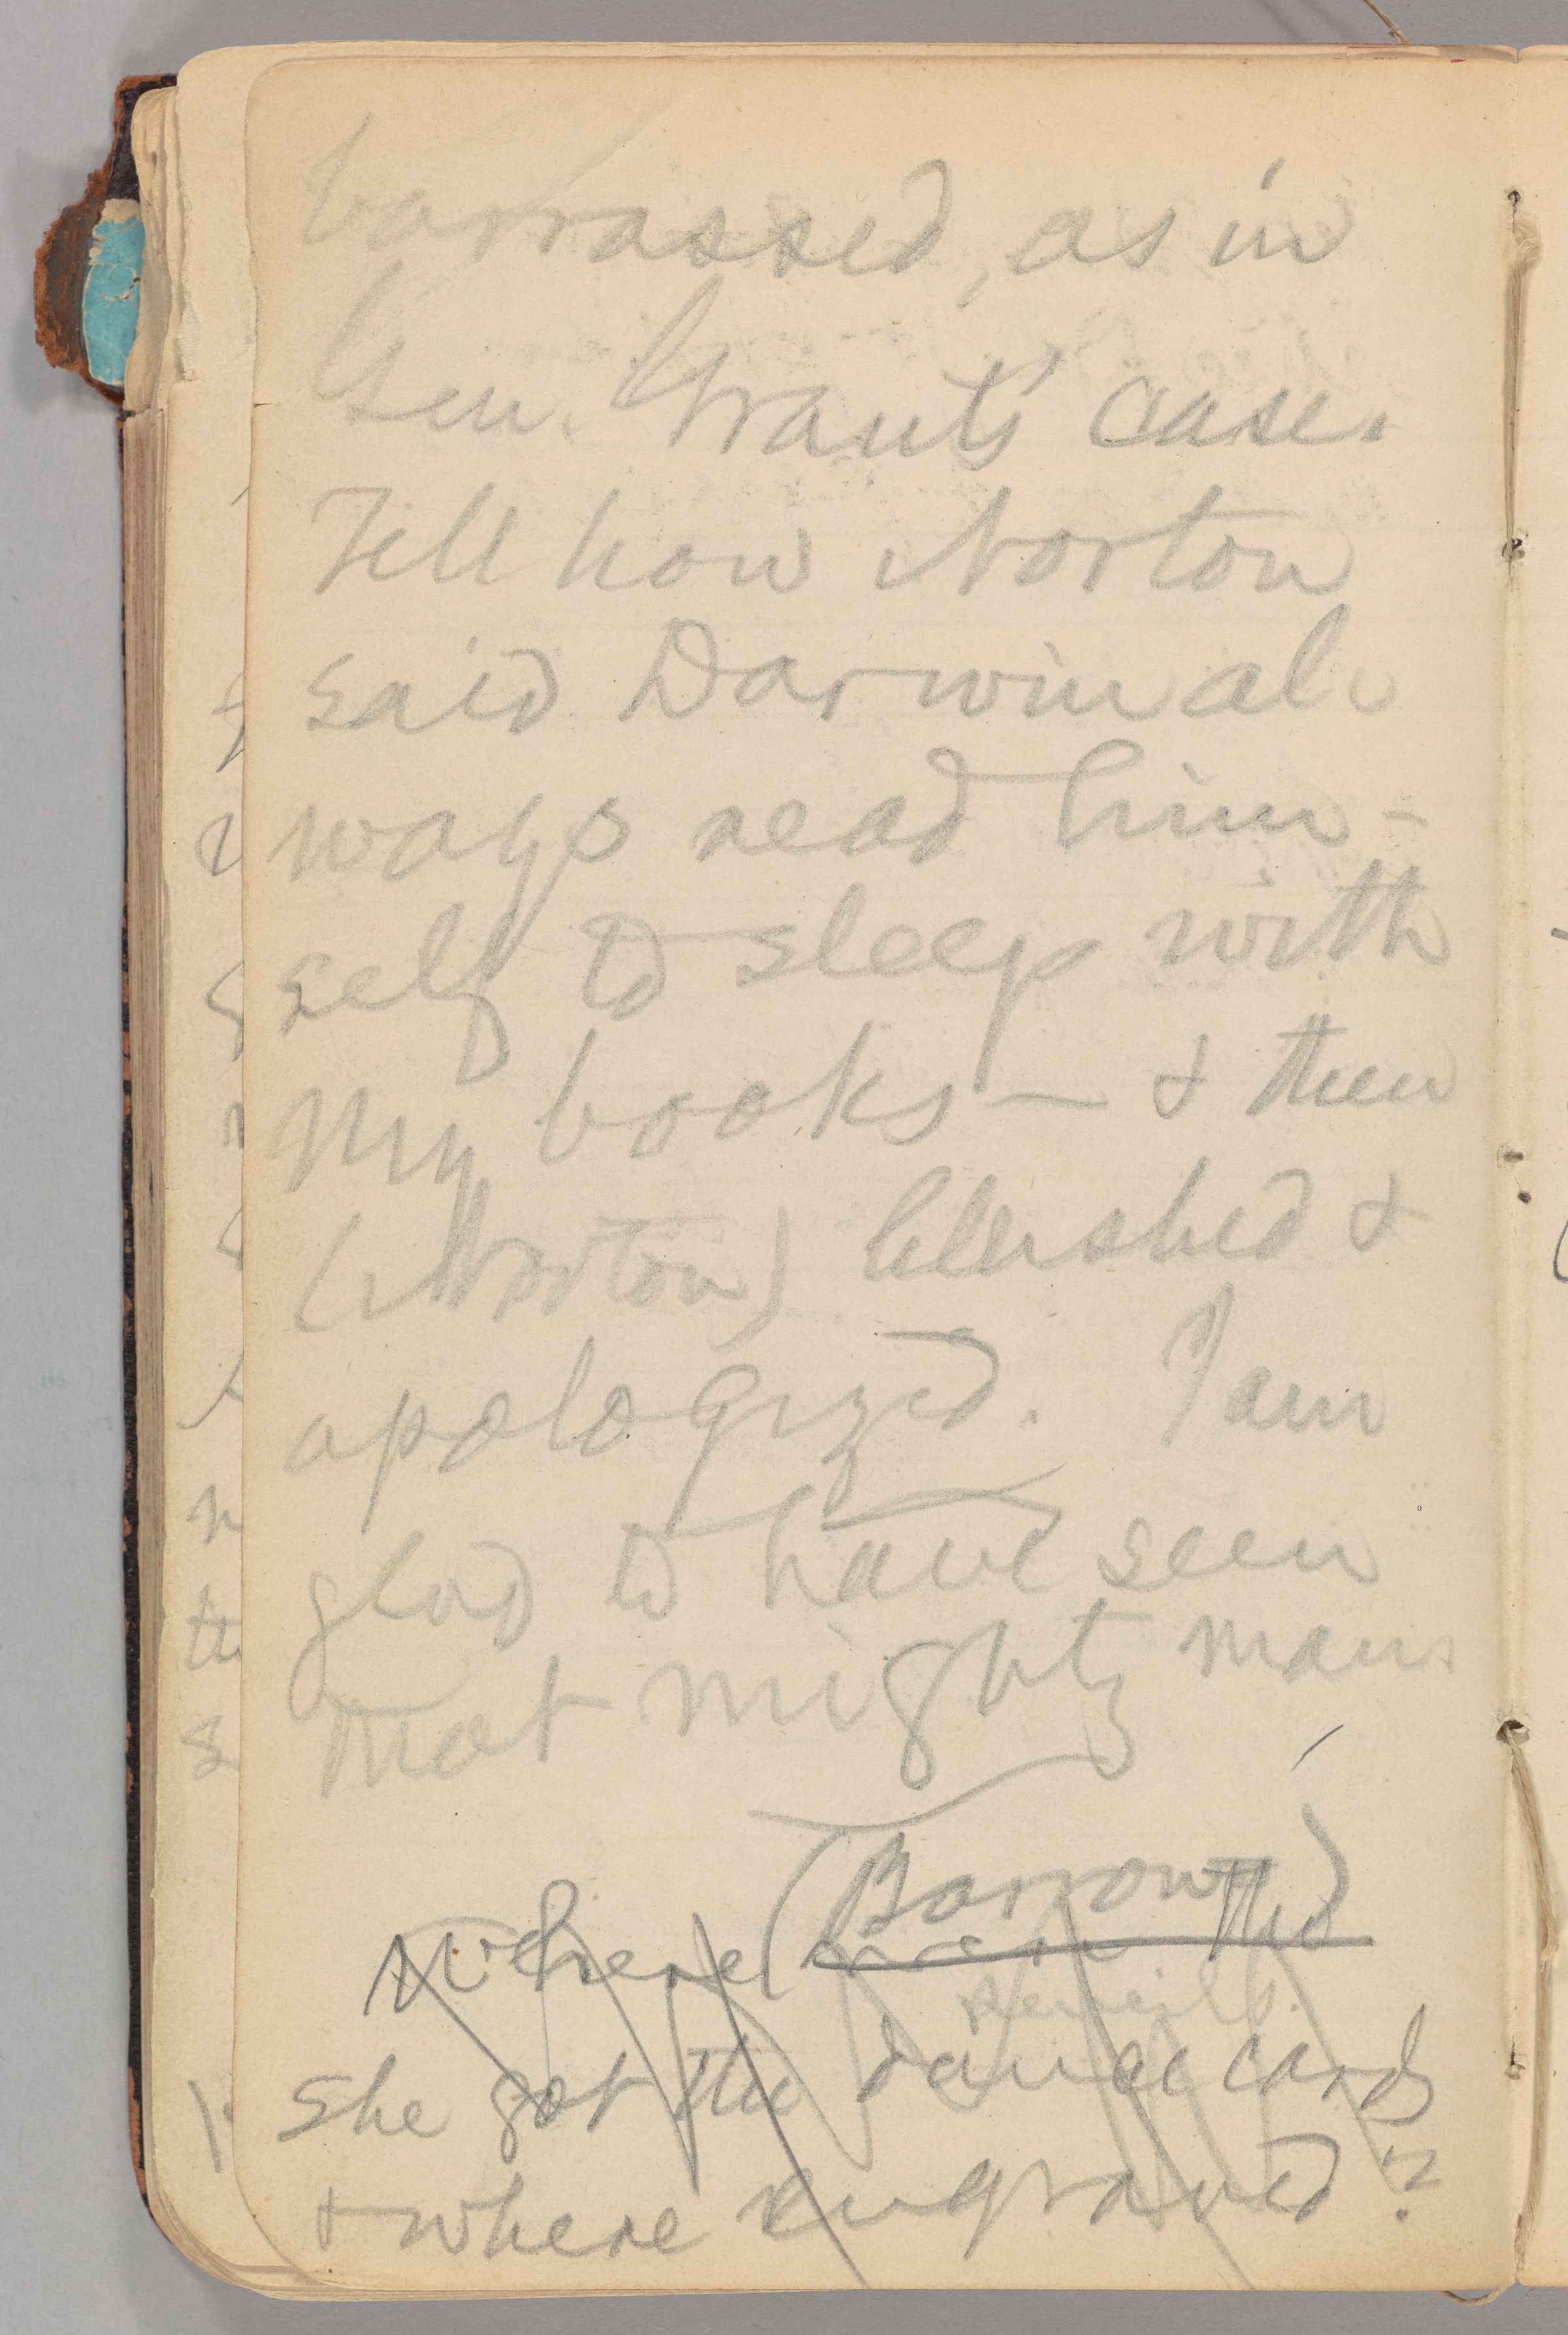 barrassed, as in
Gen. Grant's case.
Tell how Norton
said Darwin al-
ways read him-
self to sleep with
my books — & then
(Norton) blushed &
apologized. I am
glad to have seen
that mighty man.
(Barrow)
Where the
pencils.
she got the dance cards
& where engraved?